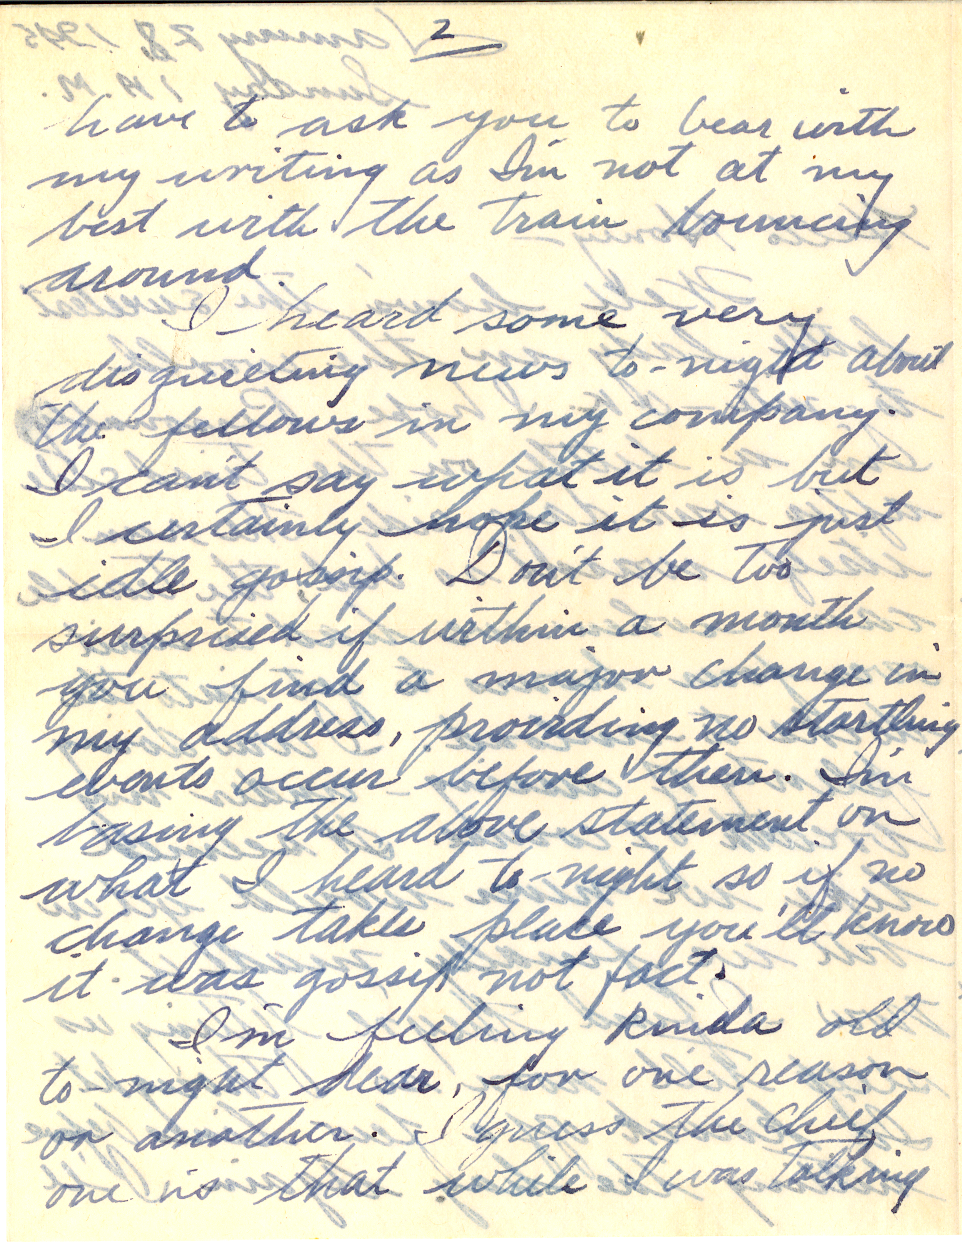 2
have to ask you to bear with
my writing as I'm not at my
best with the train bouncing
around.
I heard some very
disquieting news to-night about
the fellows in my company.
I can't say what it is but
I certainly hope it is just
idle gossip. Don't be too
surprised if within a month
you find a major change in
my address, providing no startling
events occur before then. I'm
basing the above statement on
what I heard to-night so if no
change takes place you'll know
it was gossip not fact.
I'm feeling kinda old
to-night dear, for one reason
or another. I guess the chief
one is that while I was talking